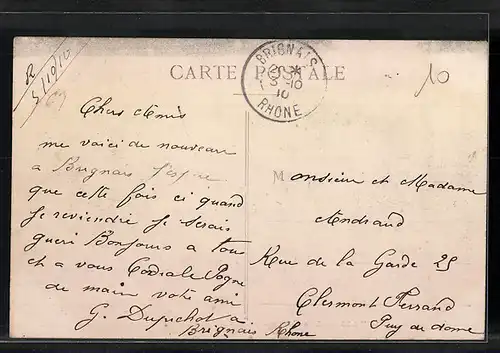 R
5/10/10
CARTE POSTALE
BRIGNAIS
3-10
10
RHONE
10
Chers Amis
me voici de nouveau
a Brignais J'espere
que cette fois ci quand
Je reviendré Je serais
gueri Bonjours a tous
et a vous Cordiale Pogne
de main votre ami
G. Dupuchot a
Brignais Rhone
Monsieur et Madame
Andraud
Rue de la Garde 25
Clermont Ferrand
Puy de dome